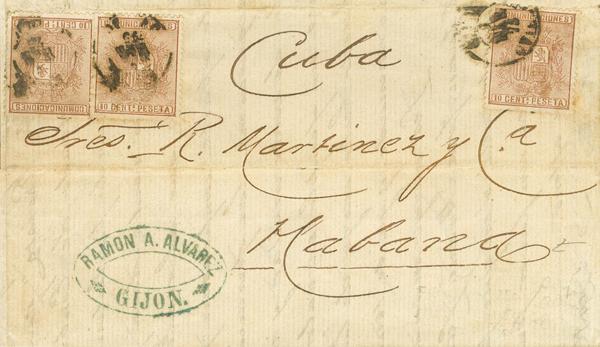 10 CENT. PESETA
COMUNICACIONES
COMUNICACIONES
10 CENT. PESETA
COMUNICACIONES
10 CENT. PESETA
Cuba
Sres. R. Martinez y Ca
Habana
RAMON A. ALVAREZ
GIJON.